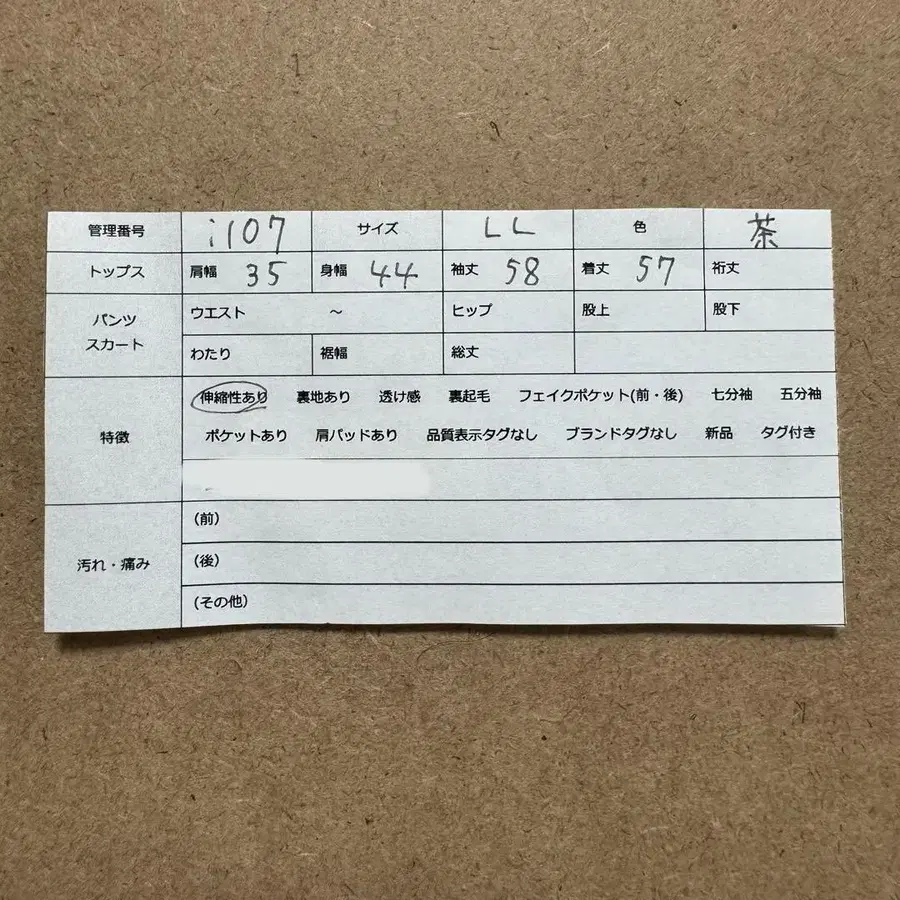 管理番号 i107 サイズ LL 色 茶
トップス 肩幅 35 身幅 44 袖丈 58 着丈 57 裄丈
パンツ スカート
ウエスト ～ ヒップ 股上 股下
わたり 裾幅 総丈
特徴
伸縮性あり 裏地あり 透け感 裏起毛 フェイクポケット(前・後) 七分袖 五分袖
ポケットあり 肩パッドあり 品質表示タグなし ブランドタグなし 新品 タグ付き
汚れ・痛み
(前)
(後)
(その他)